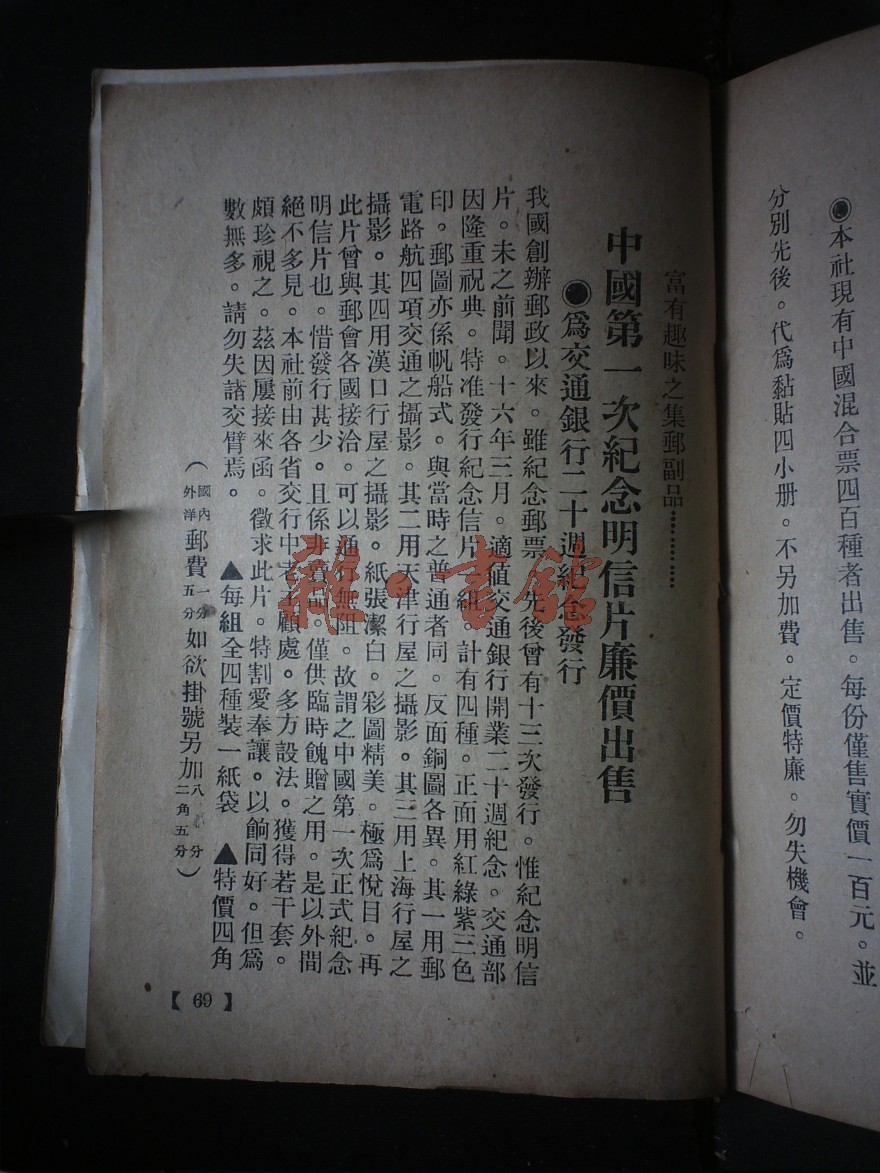 ●本社現有中國混合票四百種者出售。每份僅售實價一百元。並
分別先後。代爲黏貼四小册。不另加費。定價特廉。勿失機會。
富有趣味之集郵副品…………
中國第一次紀念明信片廉價出售
●爲交通銀行二十週紀念發行
我國創辦郵政以來。雖紀念郵票。先後曾有十三次發行。惟紀念明信
片。未之前聞。十六年三月。適値交通銀行開業二十週紀念。交通部
因隆重祝典。特准發行紀念信片一組。計有四種。正面用紅綠紫三色
印。郵圖亦係帆船式。與當時之普通者同。反面銅圖各異。其一用郵
電路航四項交通之攝影。其二用天津行屋之攝影。其三用上海行屋之
攝影。其四用漢口行屋之攝影。紙張潔白。彩圖精美。極爲悅目。再
此片曾與郵會各國接洽。可以通行無阻。故謂之中國第一次正式紀念
明信片也。惜發行甚少。且係非賣品。僅供臨時餽贈之用。是以外間
絕不多見。本社前由各省交行中老主顧處。多方設法。獲得若干套。
頗珍視之。茲因屢接來函。徵求此片。特割愛奉讓。以餉同好。但爲
數無多。請勿失諸交臂焉。
▲每組全四種裝一紙袋 ▲特價四角
（國內外洋郵費一分五分如欲掛號另加八分二角五分）
【69】
雜·書館